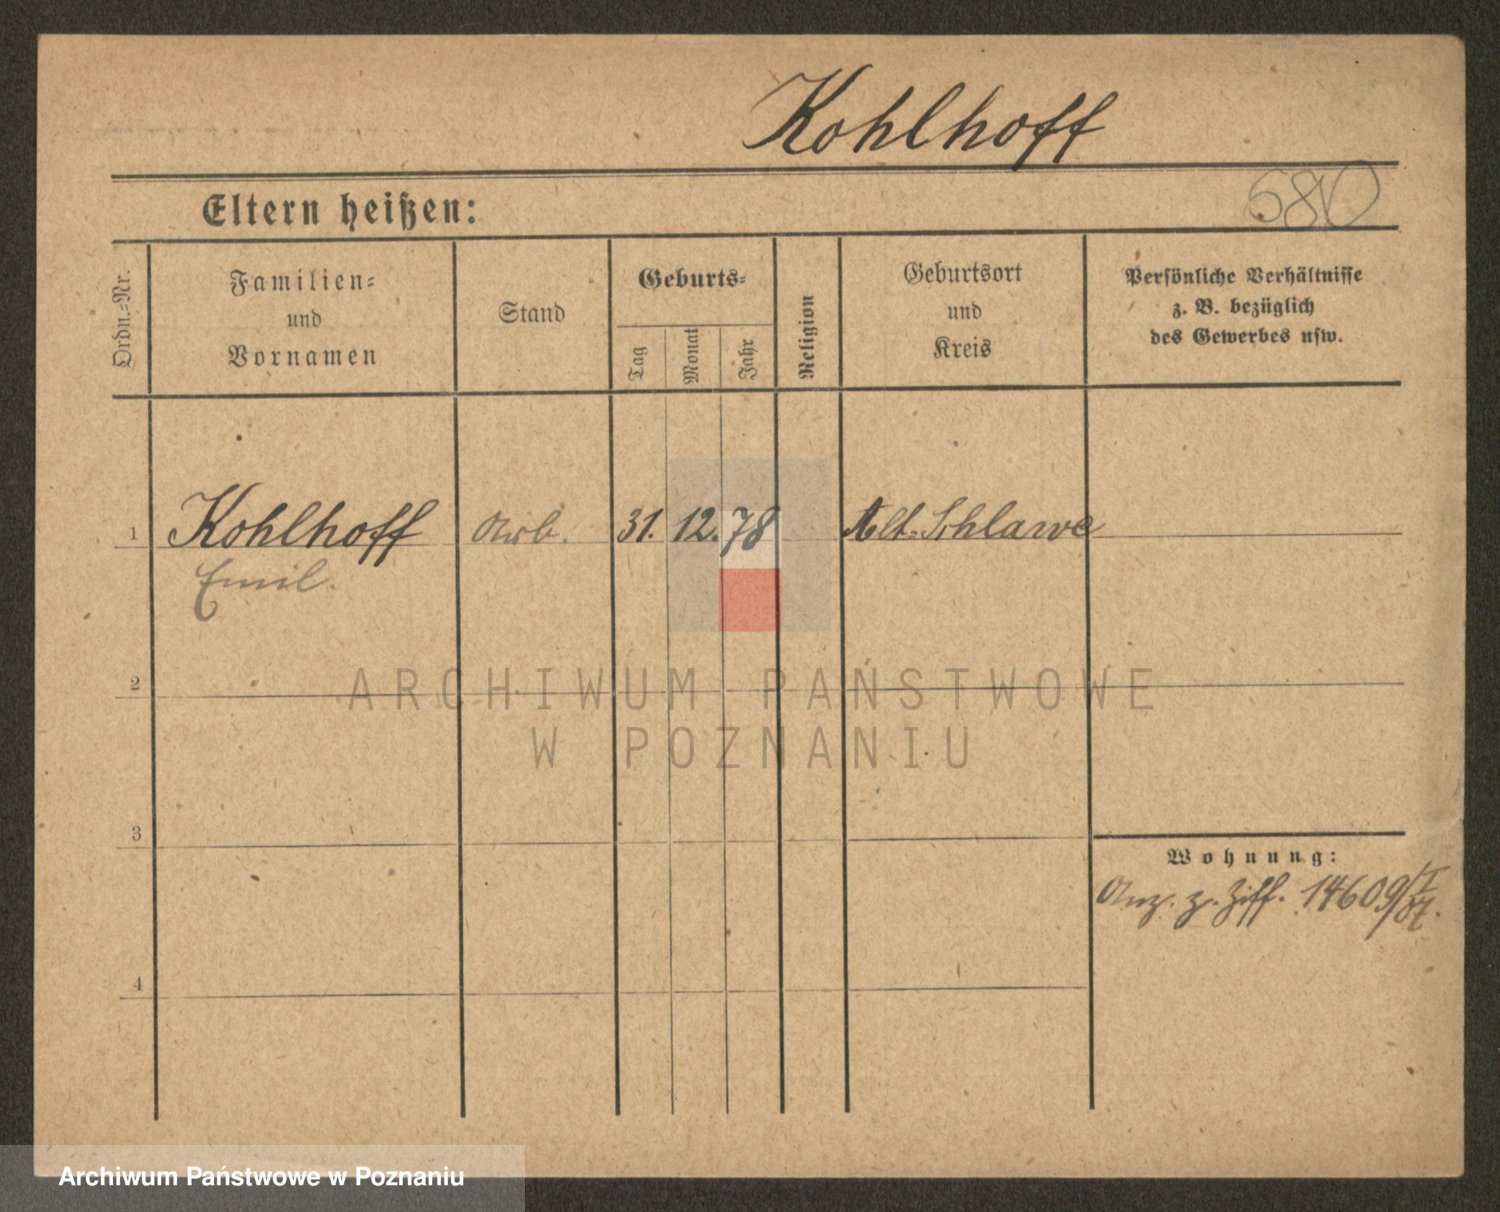 Kohlhoff
580
Eltern heißen:
Ordn.-Nr.
Familien-
und
Vornamen
Stand
Geburts-
Tag
Monat
Jahr
Religion
Geburtsort
und
Kreis
Persönliche Verhältnisse
z. B. bezüglich
des Gewerbes usw.
1 Kohlhoff Arb. 31. 12. 78 Alt-Schlawe
Emil.
2
ARCHIWUM PAŃSTWOWE
W POZNANIU
3
Wohnung:
Anz. z. Ziff. 14609/I
07.
4
Archiwum Państwowe w Poznaniu